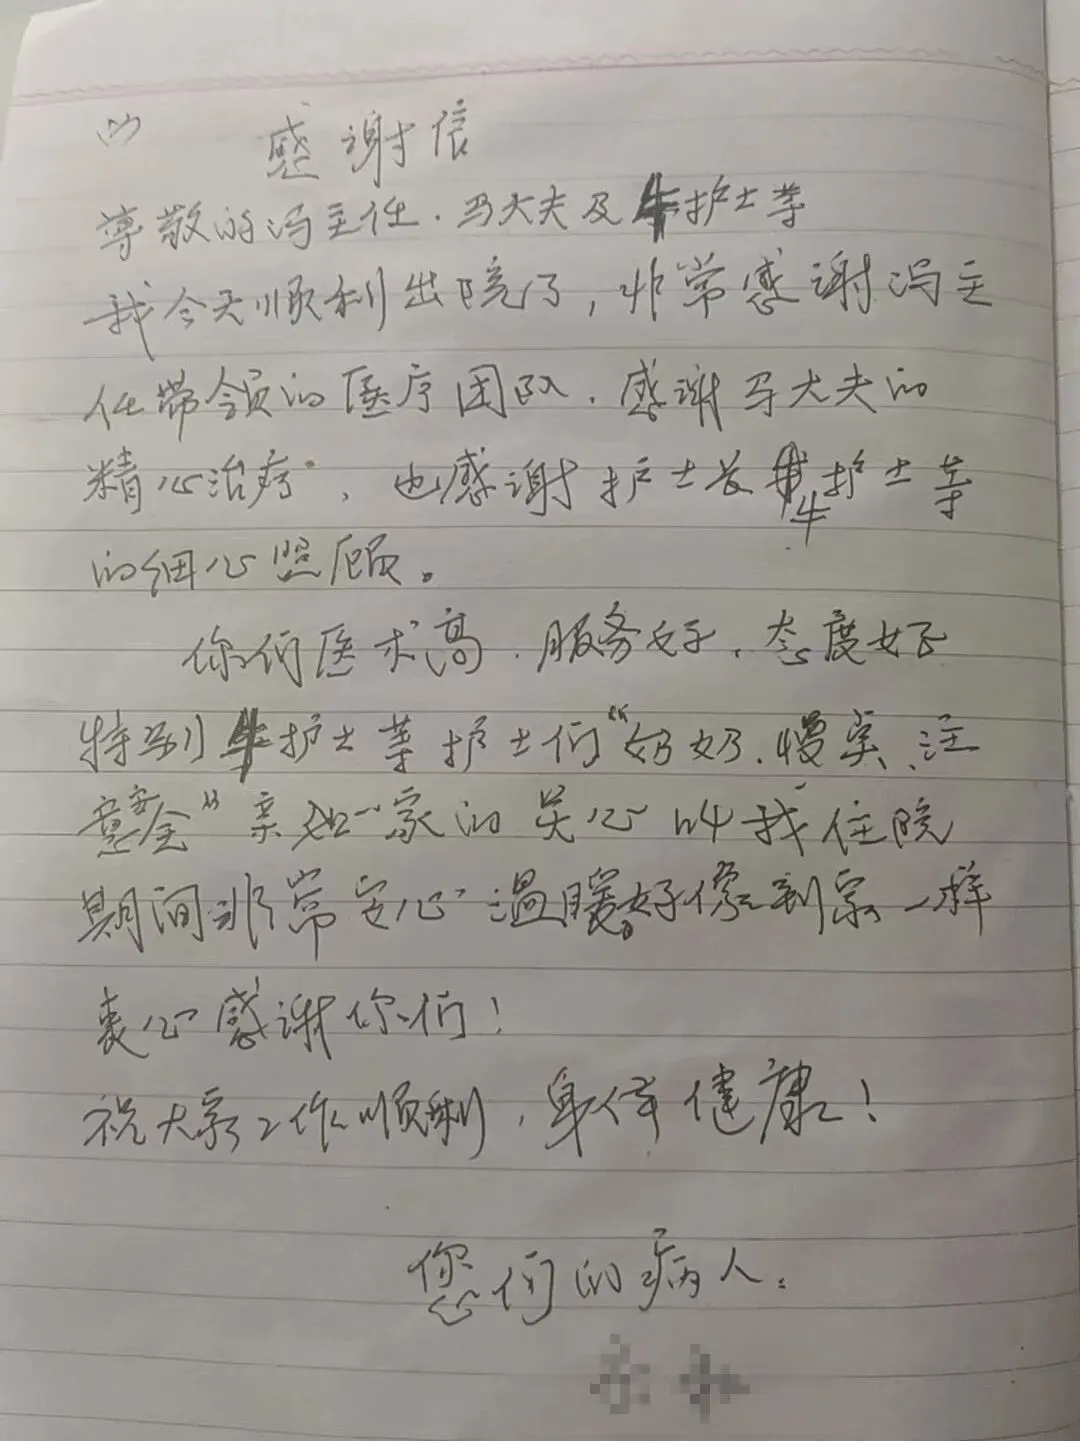 感谢信
尊敬的冯主任.马大夫及牛护士等
我今天顺利出院了,非常感谢冯主
任带领的医疗团队.感谢马大夫的
精心治疗,也感谢护士长牛护士等
的细心照顾。
你们医术高.服务好.态度好
特别牛护士等护士们“奶奶.慢点.注
意安全”亲如一家的关心叫我住院
期间非常安心温暖好像到家一样
衷心感谢你们!
祝大家工作顺利,身体健康!
您们的病人: